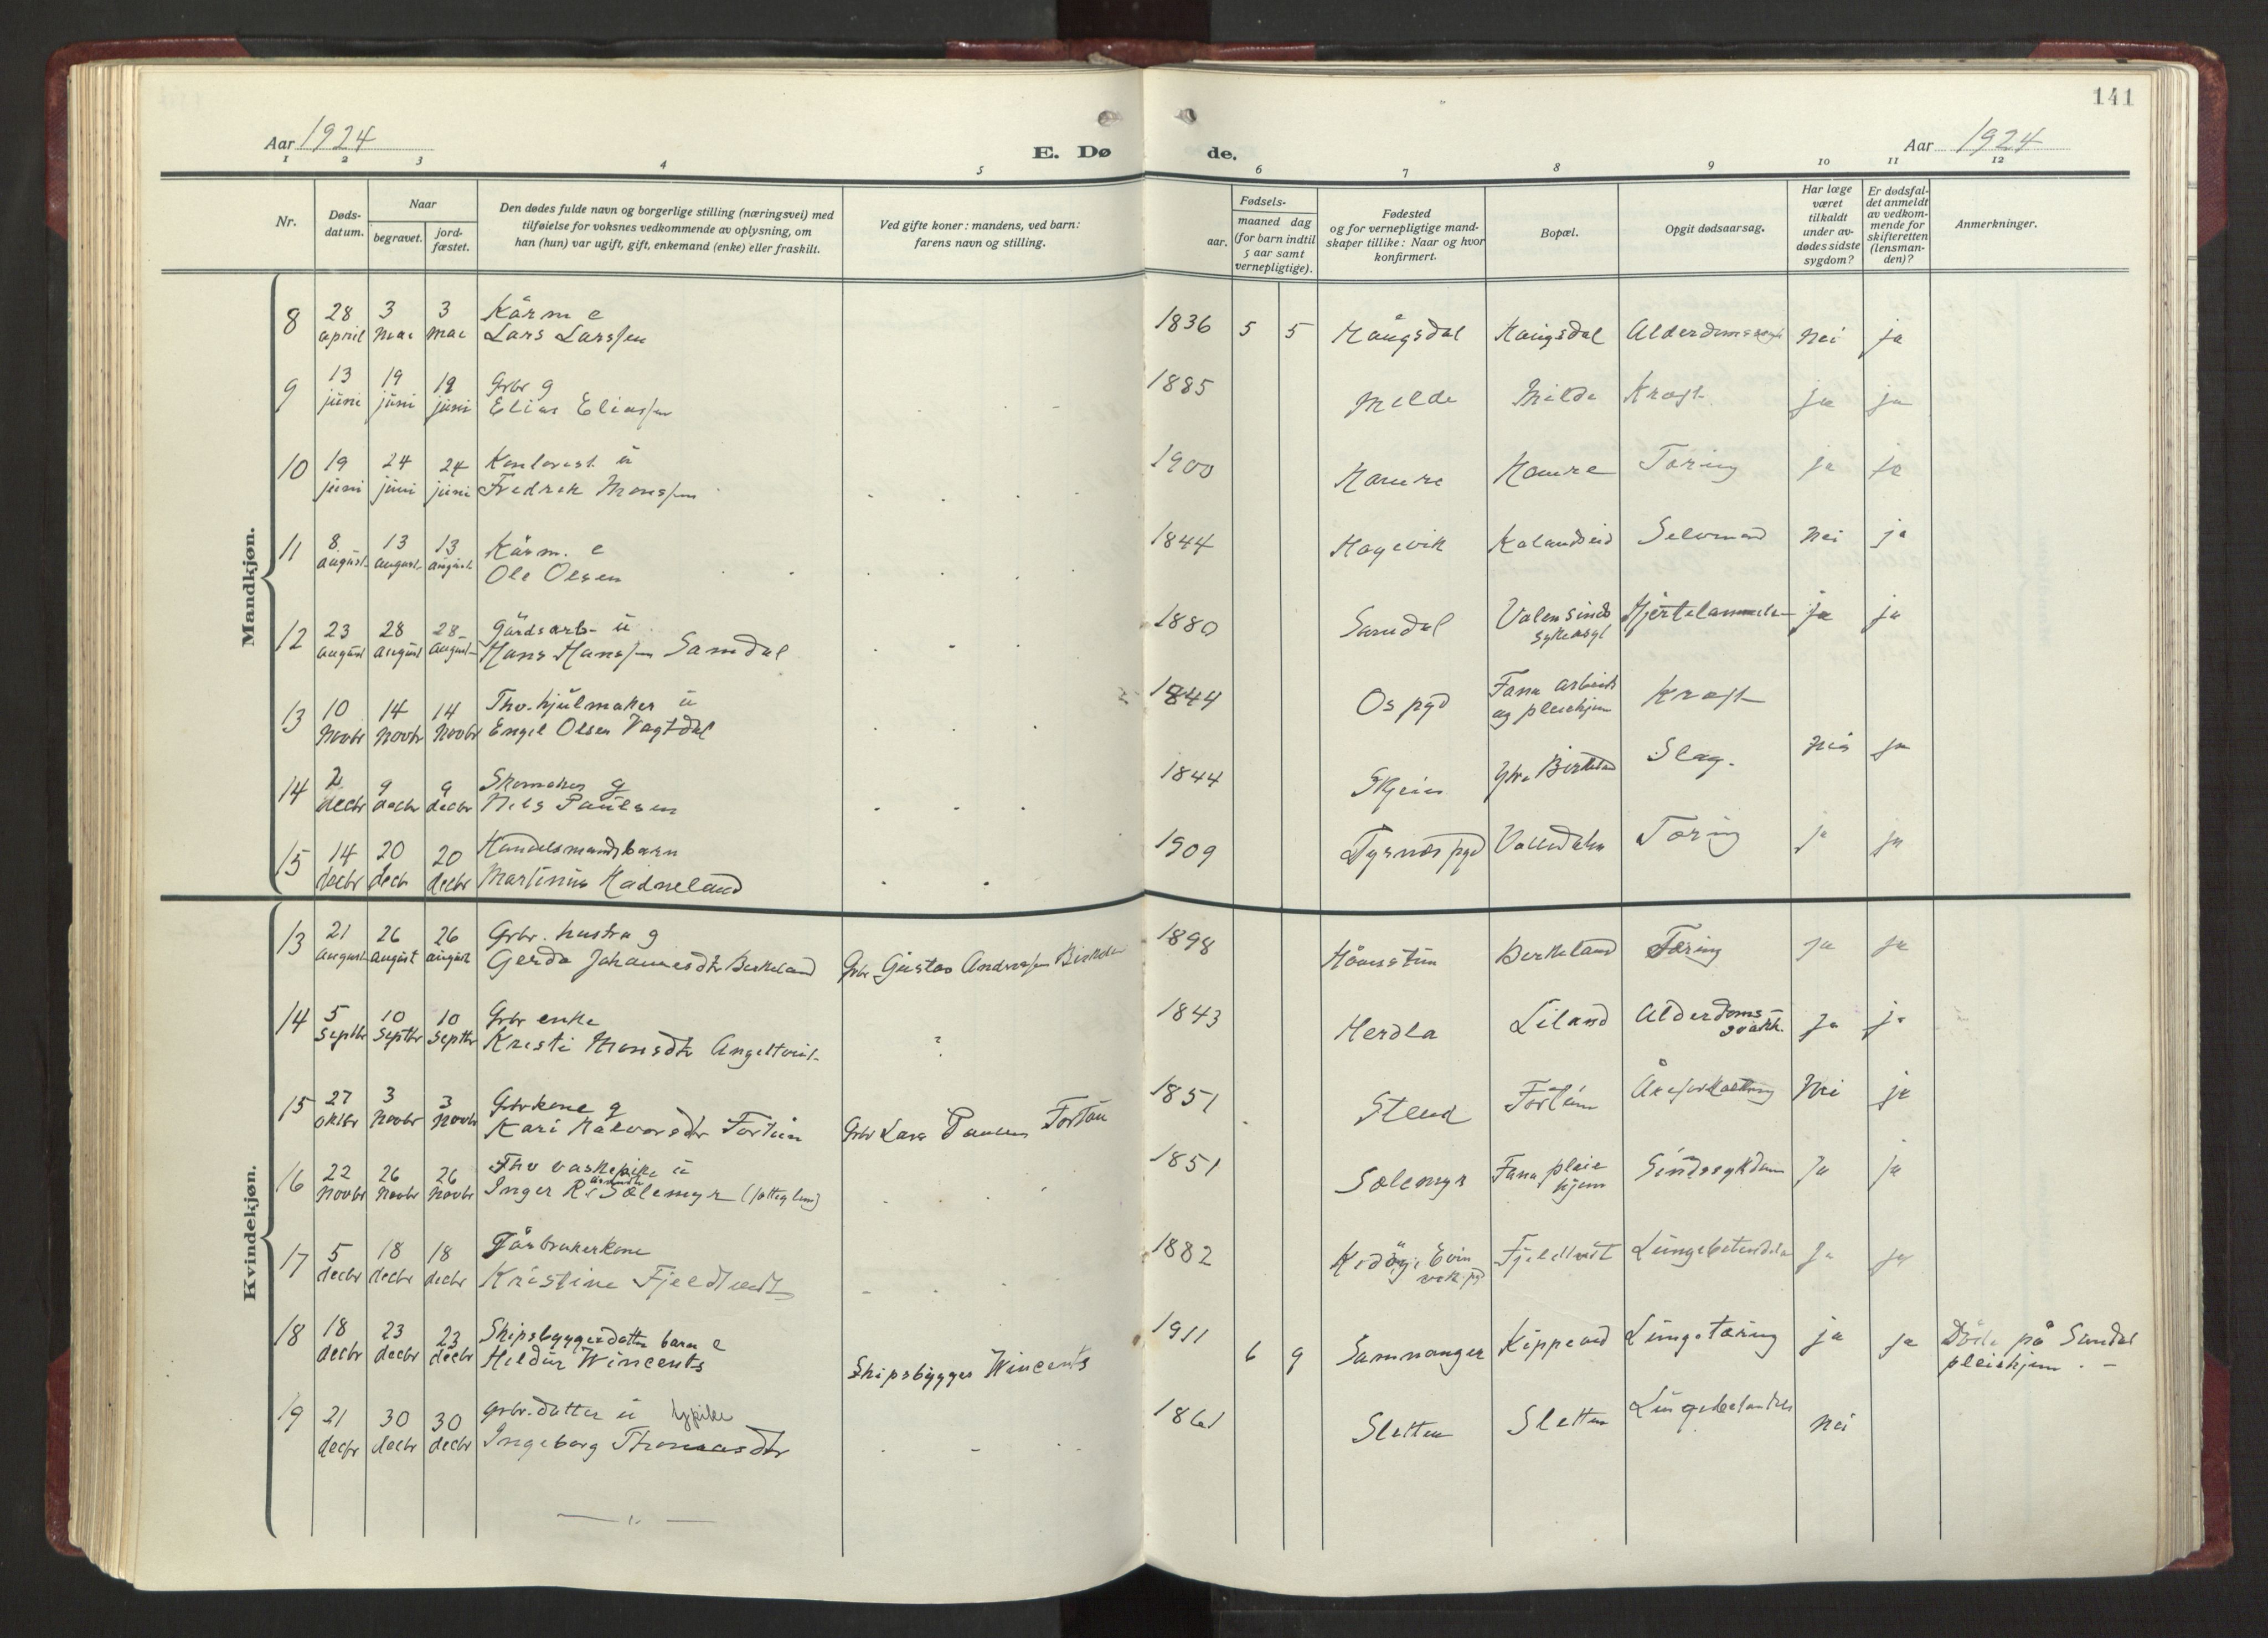 141
Aar 1924
E. Døde.
Aar 1924
1 2 3 4 5 6 7 8 9 10 11 12
Nr.
Døds-
datum.
Naar
begravet.
jord-
fæstet.
Den dødes fulde navn og borgerlige stilling (næringsvei) med
tilføielse for voksnes vedkommende av oplysning, om
han (hun) var ugift, gift, enkemand (enke) eller fraskilt.
Ved gifte koner: mandens, ved barn:
farens navn og stilling.
Fødsels-
aar.
maaned dag
(for barn indtil
5 aar samt
vernepligtige).
Fødested
og for vernepligtige mand-
skaper tillike: Naar og hvor
konfirmert.
Bopæl.
Opgit dødsaarsag.
Har læge
været
tilkaldt
under av-
dødes sidste
sygdom?
Er dødsfal-
det anmeldt
av vedkom-
mende for
skifteretten
(lensman-
den)?
Anmerkninger.
Mandkjøn.
8 28 april 3 mai 3 mai Kårm e
Lars Larssen 1836 5 5 Haugsdal Haugsdal nei ja
9 13 juni 19 juni 19 juni Grbr g
Elias Eliassen 1885 Milde Milde Kræft ja ja
10 19 juni 24 juni 24 juni Kontorist u
Fredrik Monssen 1900 Hamre Hamre Tæring ja ja
11 8 august 13 august 13 august Kårm. e
Ole Olsen 1844 Hagevik Kalandseid Selvmord nei ja
12 23 august 28 august 28 august Gårdsarb. u
Hans Hanssen Samdal 1880 Samdal Valen sinds
sykeasyl ja ja
13 10 Novbr 14 Novbr 14 Novbr Fhv. hjulmaker u
Engel Olsen Vagtdal 1844 Os pgd Fana arbeids
og pleiehjem Kræft
14 2 decbr 9 decbr 9 decbr Skomaker g
Nils Paulsen 1844 Skjein Ytre Birkeland Slag. nei ja
15 14 decbr 20 decbr 20 decbr Handelsmandsbarn
Martinus Hadneland 1909 Tysnes pgd Tæring ja ja
Kvindekjøn.
13 21 august 26 august 26 august Grbr. hustru g
Gerda Johannesdtr Birkeland Grbr Gustav Andreassen Birkeland 1898 Birkeland Tæring ja ja
14 5 Septbr 10 Septbr 10 Septbr Grbr enke
Kristi Monsdtr Angeltveit 1843 Herdla Liland Alderdoms-
svakh. ja ja
15 27 oktbr 3 Novbr 3 Novbr Grbrkone g
Kari Halvorsdtr Fortun Grbr Lars Paulsen Fortun 1851 Stend Fortun Åreforkalkning Nei ja
16 22 Novbr 26 Novbr 26 Novbr Fhv vaskepike u
Inger R. Sælemyr (fattiglem) 1851 Sælemyr Fana pleie
hjem Sindssykdom Ja ja
17 5 decbr 18 decbr 18 decbr Gårbrukerkone
Kristine Fjeldtvedt 1882 Fjeldtvedt Lungebetendelse Ja ja
18 18 decbr 23 decbr 23 decbr Skipsbyggerdatter barn e
Hildur Wincents Skipsbygger Wincents 1911 6 9 Samnanger Kippervd Lungetæring ja ja Døde på Samdal
pleiehjem. -
19 21 decbr 30 decbr 30 decbr grbr. datter u pike
Ingeborg Thomasdtr 1861 Sletten Sletten Lungebetændelse nei